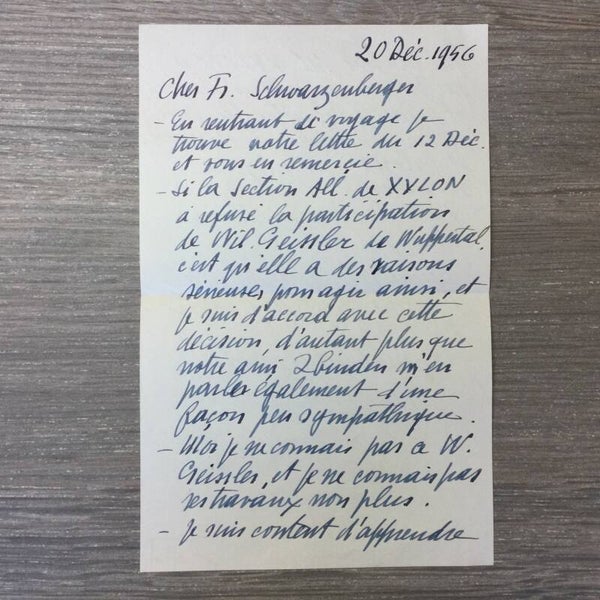 20 Déc. 1956
Cher Fr. Schwarzenberger
- En rentrant de voyage je
trouve votre lettre du 12 Déc.
et vous en remercie.
- Si la Section All. de XYLON
a refusé la participation
de Wil. Geissler de Wuppertal,
c'est qu'elle a des raisons
sérieuses pour agir ainsi, et
je suis d'accord avec cette
décision, d'autant plus que
notre ami Zbinden m'en
parle également d'une
façon peu sympathique.
- Moi je ne connais pas ce W.
Geissler, et je ne connais pas
ses travaux non plus.
- Je suis content d'apprendre